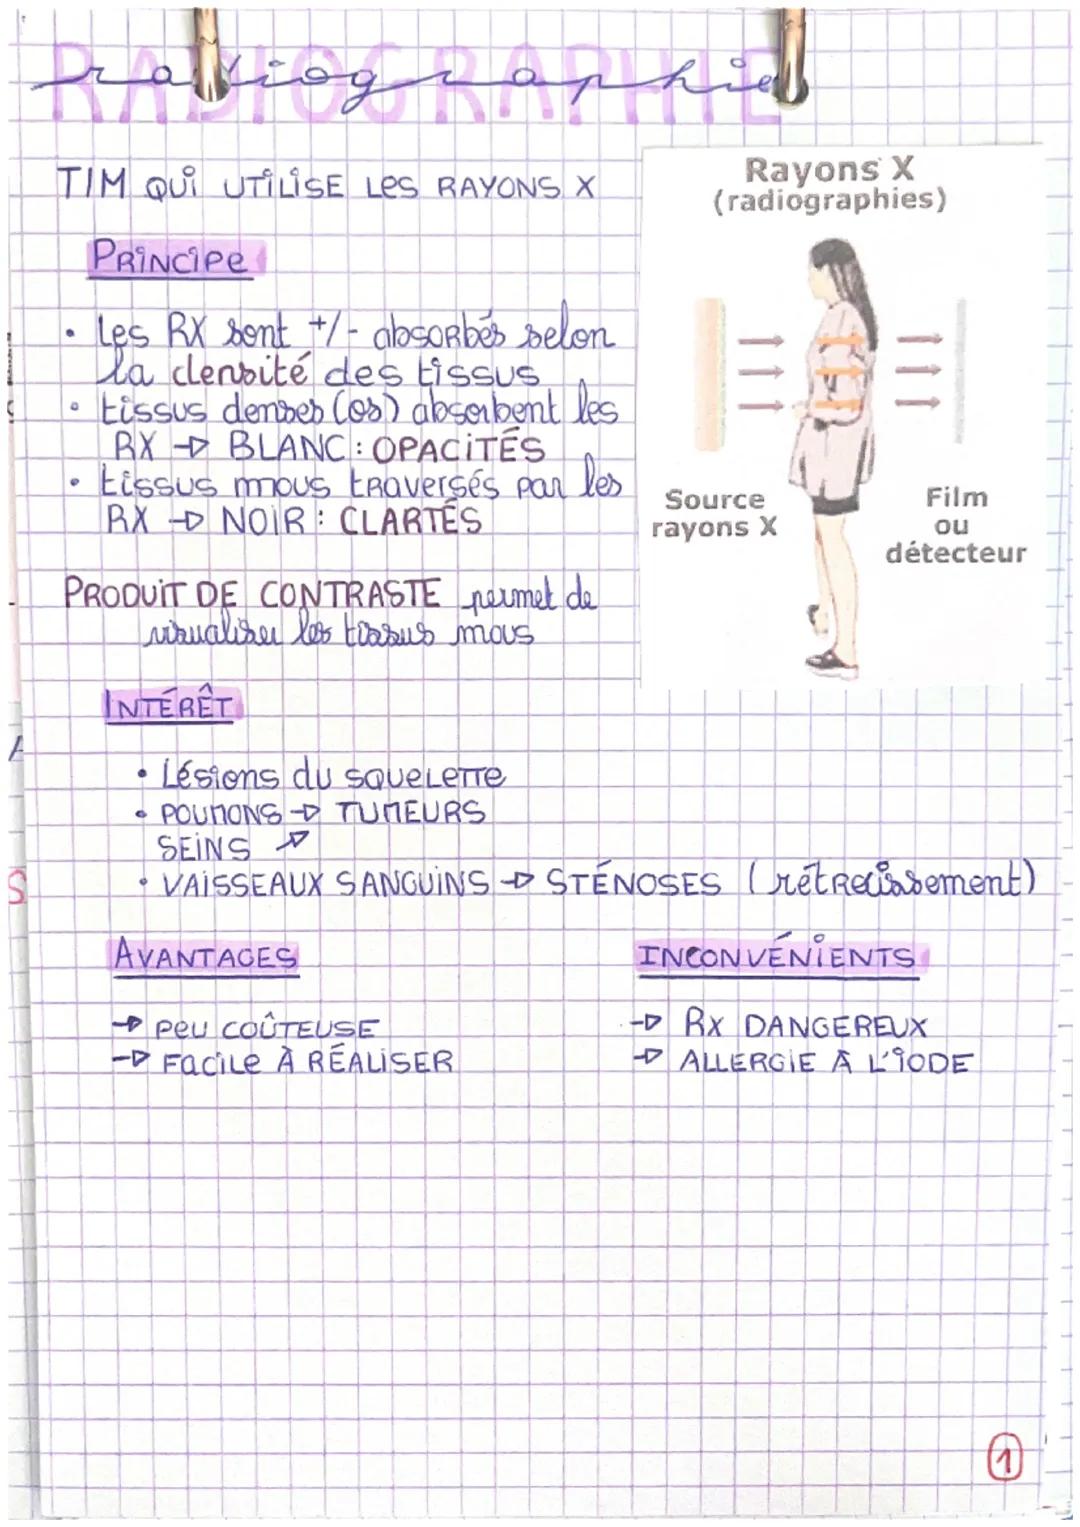 RADIOGRAPHIE
radiographie
TIM QUI UTILISE LES RAYONS X
Rayons X
(radiographies)
PRINCIPE
• Les RX sont +/- absorbés selon
la densité des tissus
• tissus denses (os) absorbent les
RX → BLANC : OPACITÉS
• tissus mous traversés par les
RX → NOIR : CLARTÉS
Source
rayons X
Film
ou
détecteur
PRODUIT DE CONTRASTE permet de
visualiser les tissus mous
INTÉRÊT
• Lésions du squelette
• POUMONS → TUMEURS
SEINS ↗
• VAISSEAUX SANGUINS → STÉNOSES (rétrecissement)
AVANTAGES
INCONVÉNIENTS
→ PEU COÛTEUSE
→ FACILE À RÉALISER
→ RX DANGEREUX
→ ALLERGIE À L'IODE
1